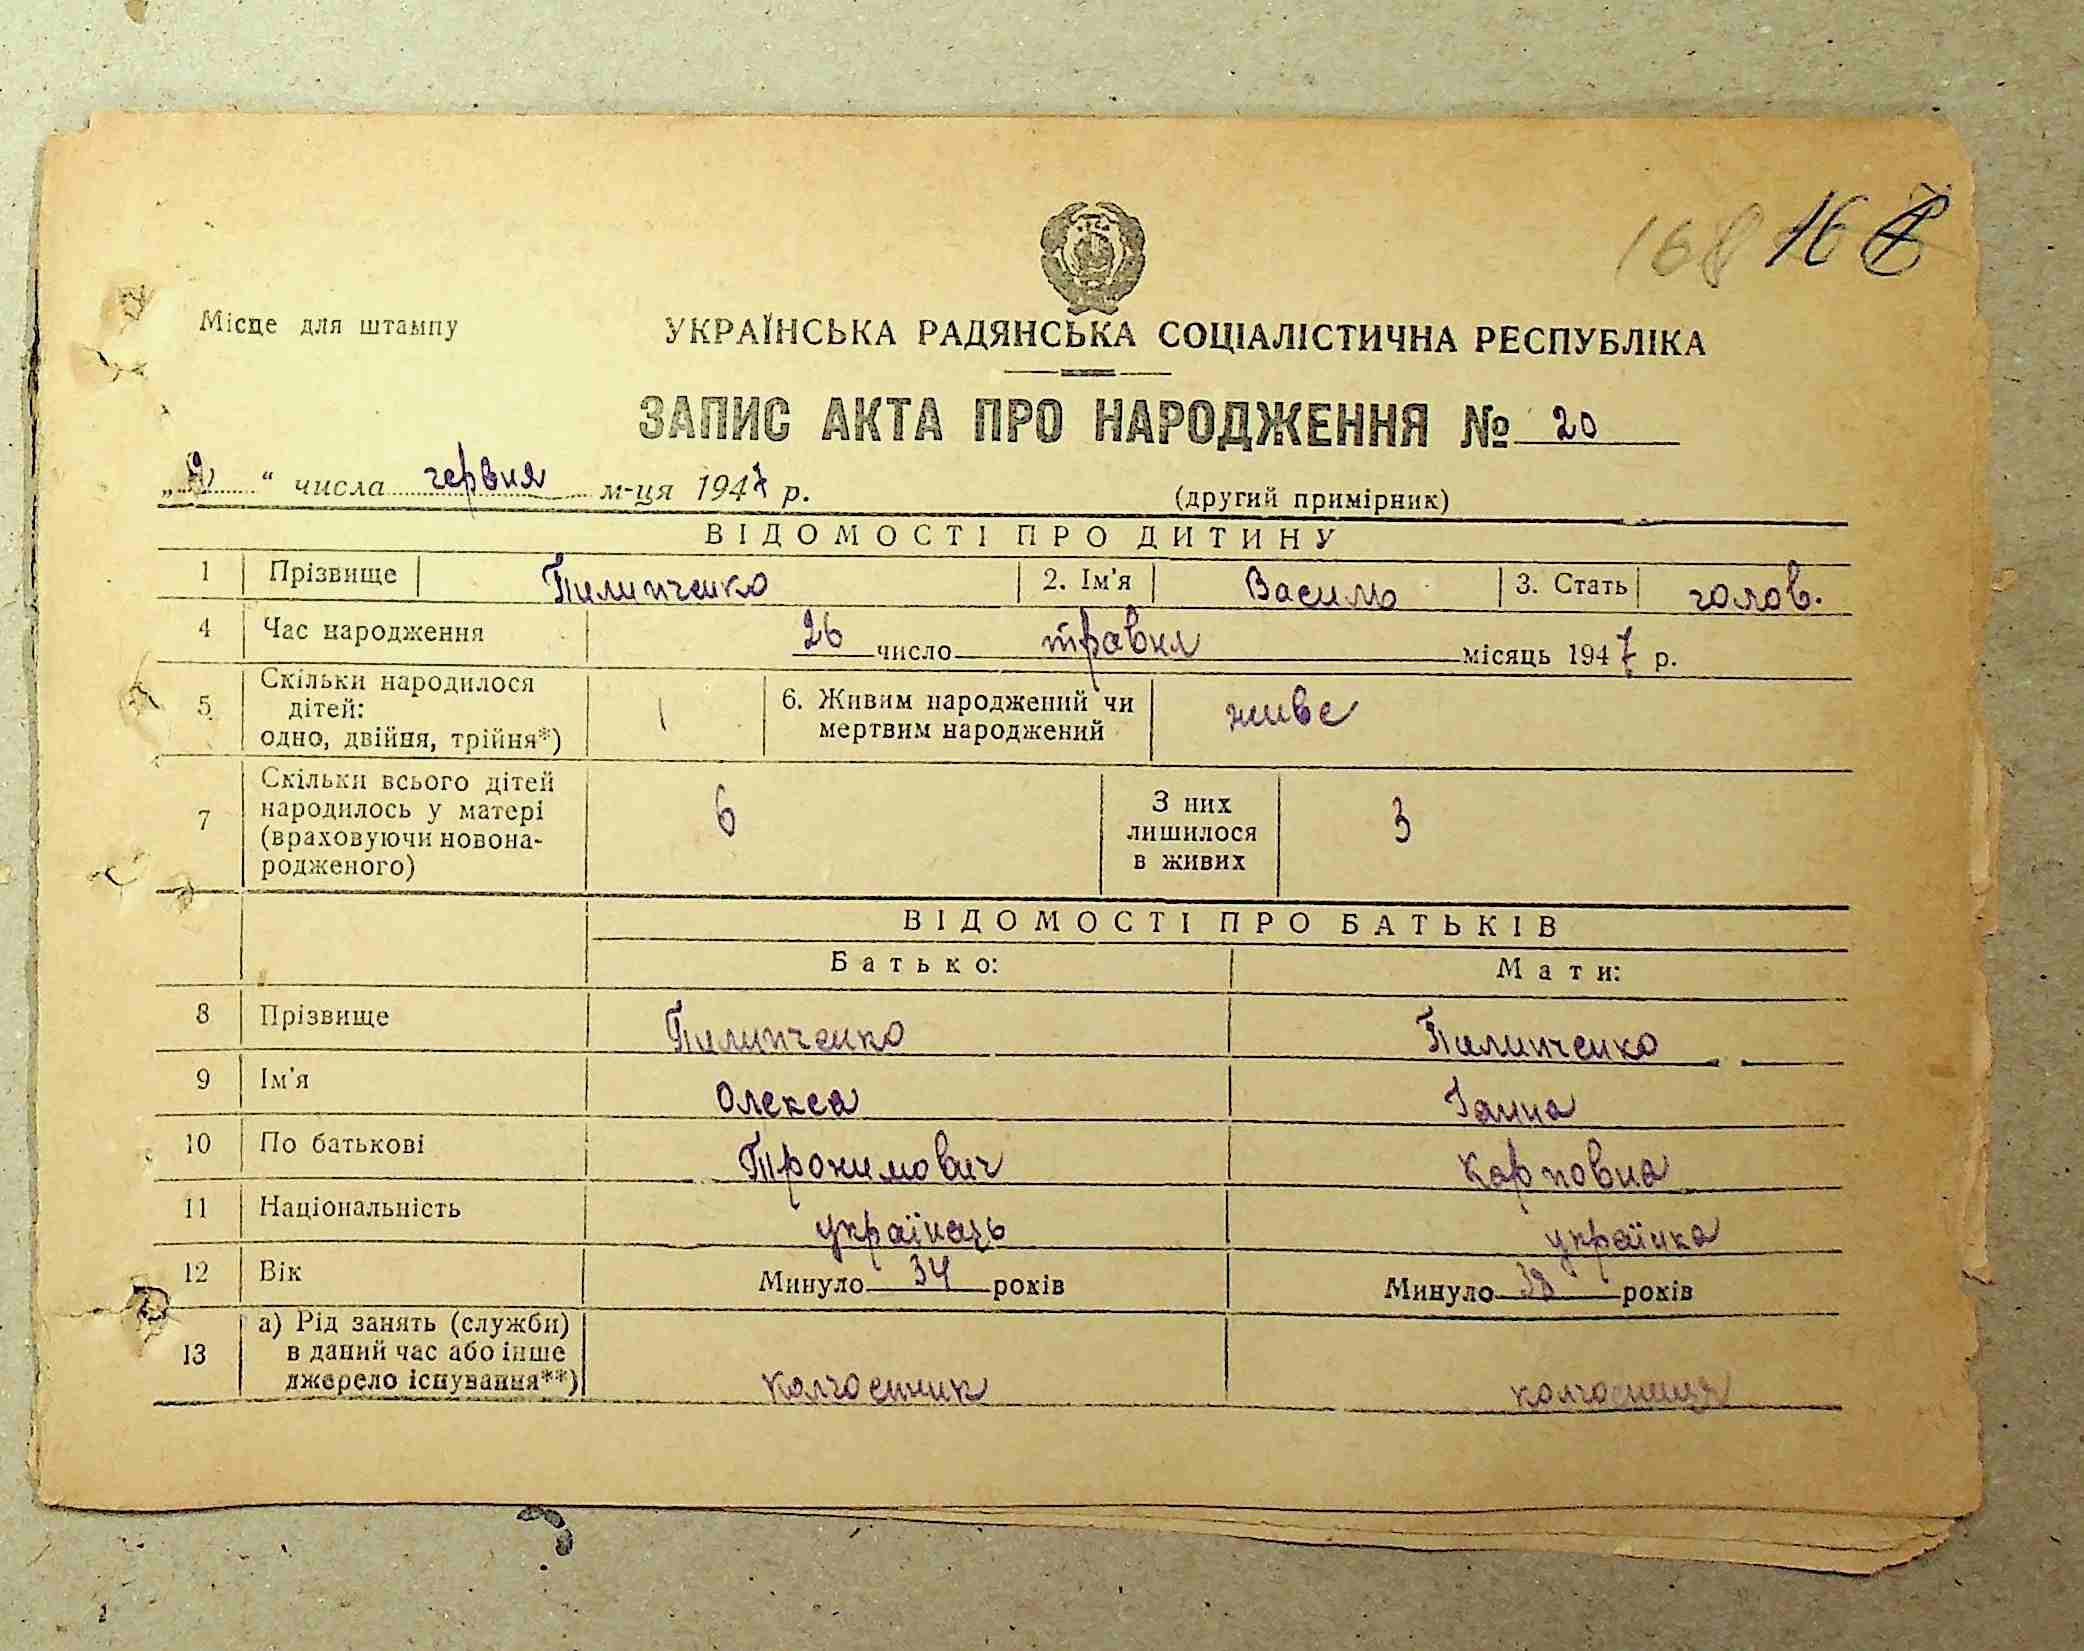 168 16
Місце для штампу
УКРАЇНСЬКА РАДЯНСЬКА СОЦІАЛІСТИЧНА РЕСПУБЛІКА
ЗАПИС АКТА ПРО НАРОДЖЕННЯ № 20
„2“ числа червня м-ця 1947 р. (другий примірник)
ВІДОМОСТІ ПРО ДИТИНУ
1 Прізвище Пилипченко 2. Ім'я Василь 3. Стать голов.
4 Час народження 26 число травня місяць 1947 р.
5 Скільки народилося
дітей:
одно, двійня, трійня*) 1 6. Живим народжений чи
мертвим народжений живе
7 Скільки всього дітей
народилось у матері
(враховуючи новона-
родженого) 6 З них
лишилося
в живих 3
ВІДОМОСТІ ПРО БАТЬКІВ
Батько: Мати:
8 Прізвище Пилипченко Пилипченко
9 Ім'я Олекса Ганна
10 По батькові Трохимович Карповна
11 Національність українець українка
12 Вік Минуло 34 років Минуло 38 років
13 а) Рід занять (служби)
в даний час або інше
джерело існування**) колгоспник колгоспниця